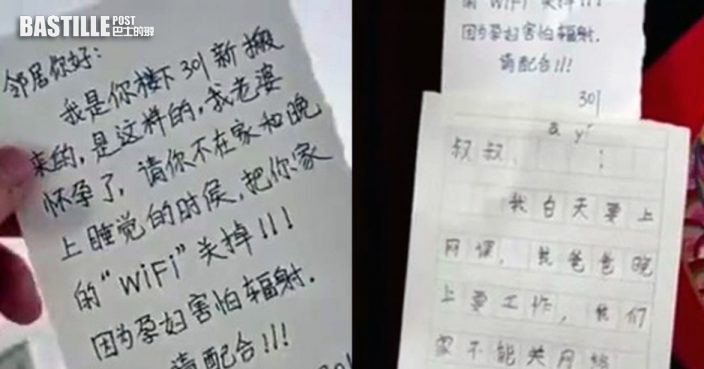 BASTILLE POST
巴士的報
邻居你好:
我是你楼下301新搬
来的,是这样的,我老婆
怀孕了,请你不在家和晚
上睡觉的时侯,把你家
的“WiFi”关掉!!!
因为孕妇害怕辐射.
请配合!!!
301
的“WiFi”关掉!!!
因为孕妇害怕辐射.
请配合!!!
301
叔叔:
我白天要上
网课,我爸爸晚
上要工作,我们
家不能关网络